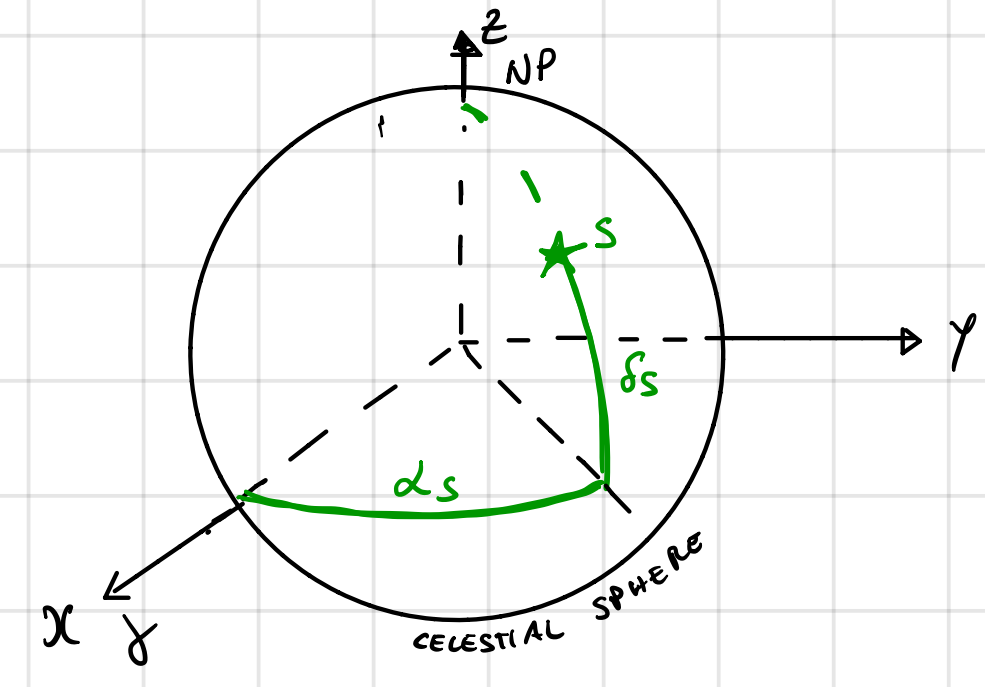 Z
NP
S
Y
δs
αs
X
γ
CELESTIAL SPHERE